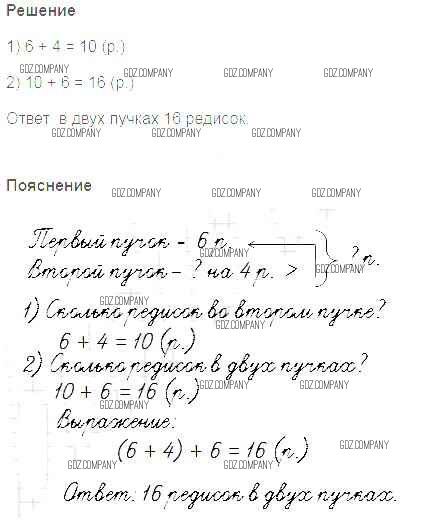 Решение
1) 6 + 4 = 10 (р.)
GDZ.COMPANY GDZ.COMPANY GDZ.COMPANY GDZ.COMPANY
2) 10 + 6 = 16 (р.)
Ответ в двух пучках 16 редисок.
GDZ.COMPANY GDZ.COMPANY GDZ.COMPANY
Пояснение
GDZ.COMPANY GDZ.COMPANY GDZ.COMPANY
Первый пучок – 6 р.
GDZ.COMPANY
Второй пучок – ? на 4 р. > ? р.
GDZ.COMPANY
GDZ.COMPANY
1) Сколько редисок во втором пучке?
GDZ.COMPANY
6 + 4 = 10 (р.)
2) Сколько редисок в двух пучках?
10 + 6 = 16 (р.)
GDZ.COMPANY GDZ.COMPANY
GDZ.COMPANY
Выражение:
(6 + 4) + 6 = 16 (р.)
GDZ.COMPANY
GDZ.COMPANY GDZ.COMPANY
Ответ: 16 редисок в двух пучках.